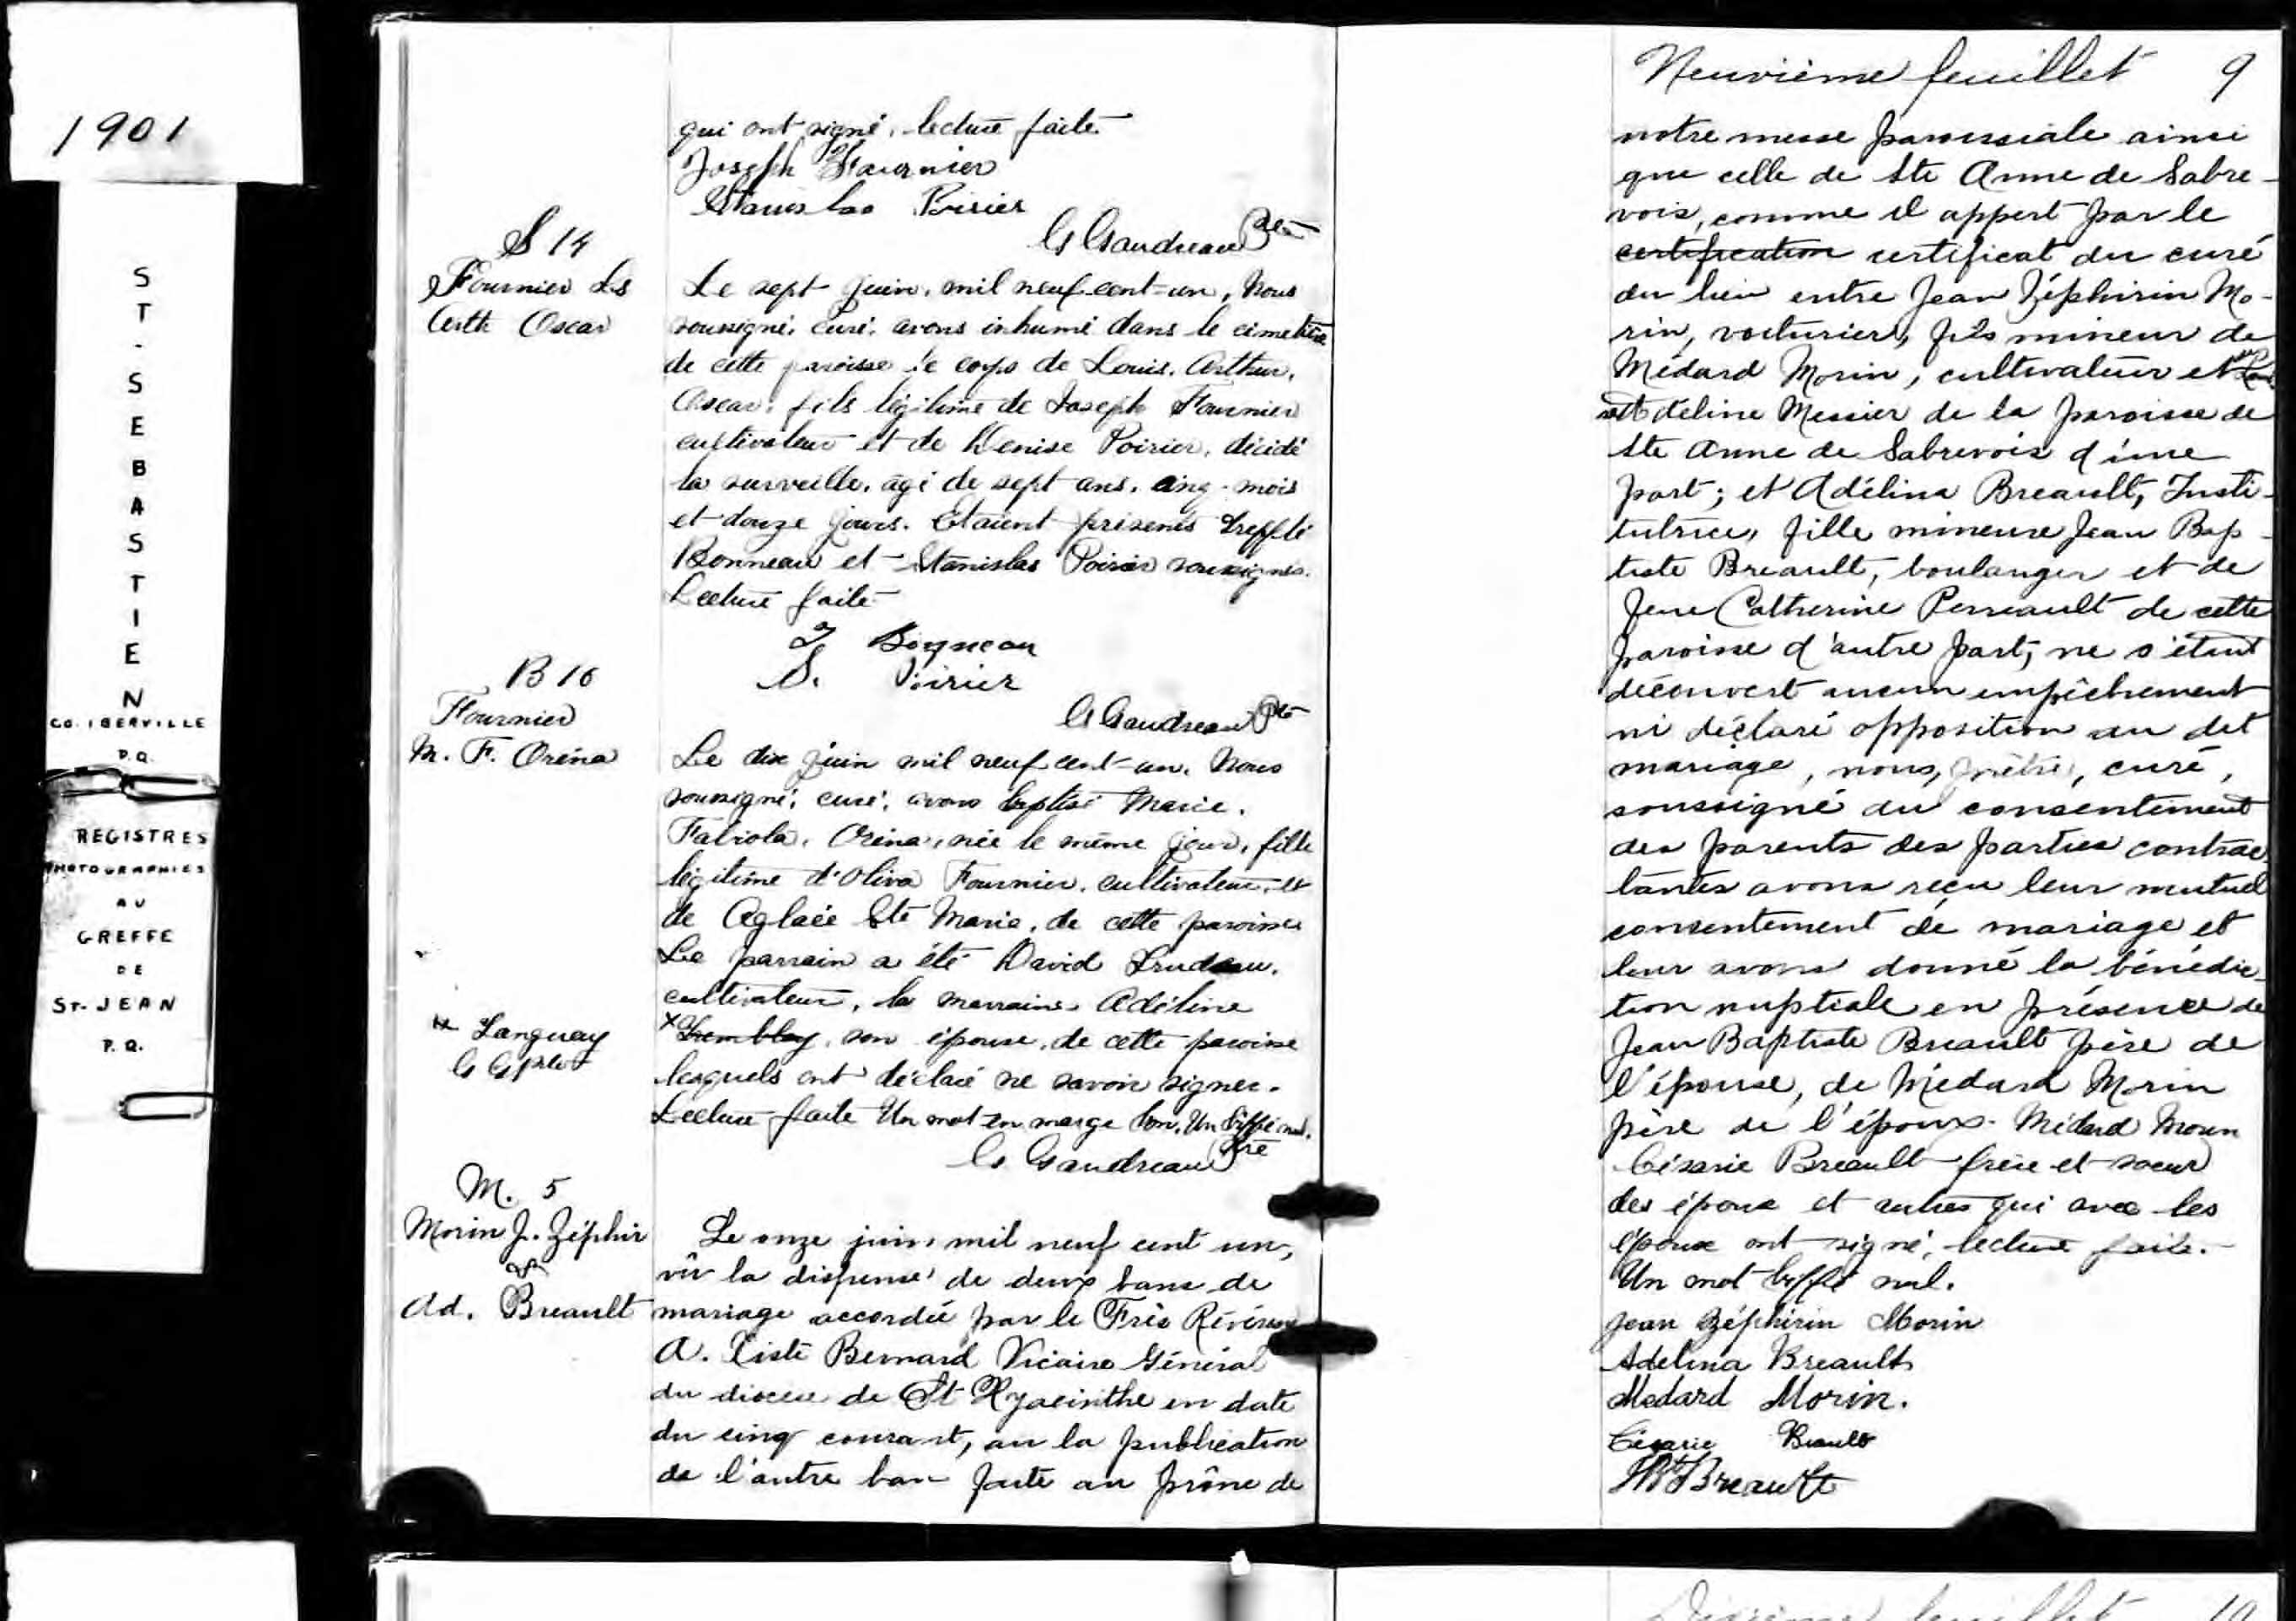 1901
ST-SEBASTIEN
CO. IBERVILLE
P.Q.
REGISTRES
PHOTOGRAPHIES
AU
GREFFE
DE
ST-JEAN
P.Q.
qui ont signé, lecture faite.
Joseph Fournier
Stanislas Poirier
G Gaudreau Ptre
S 14
Fournier Ls
Arth Oscar
Le sept juin, mil neuf cent-un, Nous
soussigné, curé, avons inhumé dans le cimetière
de cette paroisse le corps de Louis, Arthur,
Oscar, fils légitime de Joseph Fournier
cultivateur et de Denise Poirier, décédé
la surveille, âgé de sept ans, cinq mois
et douze jours. Etaient présents Trefflé
Bonneau et Stanislas Poirier soussignés.
Lecture faite
T Bonneau
S. Poirier
G Gaudreau Ptre
B 16
Fournier
M. F. Oréna
Le dix juin mil neuf cent-un, Nous
soussigné, curé, avons baptisé Marie,
Fabiola, Oréna, née le même jour, fille
légitime d'Oliva Fournier, cultivateur, et
de Aglaée Ste Marie, de cette paroisse
Le parrain a été David Trudeau,
cultivateur, la marraine Adéline
x Tremblay, son épouse, de cette paroisse
x Tanguay
G G ptre
lesquels ont déclaré ne savoir signer.
Lecture faite Un mot en marge bon. Un biffé nul.
G. Gaudreau Ptre
M. 5
Morin J. Zéphir
&
Ad. Breault
Le onze juin mil neuf cent un,
vu la dispense de deux bans de
mariage accordée par le Très Révérend
A. Xiste Bernard Vicaire Général
du diocèse de St Hyacinthe en date
du cinq courant, vu la publication
de l'autre ban faite au prône de
Neuvième feuillet 9
notre messe paroissiale ainsi
que celle de Ste Anne de Sabre-
vois, comme il appert par le
certification certificat du curé
du lieu entre Jean Zéphirin Mo-
rin, voiturier, fils mineur de
Médard Morin, cultivateur et de
Adéline Messier de la paroisse de
Ste Anne de Sabrevois d'une
part; et Adélina Breault, Insti-
tutrice, fille mineure Jean Bap-
tiste Breault, boulanger et de
feue Catherine Perreault de cette
paroisse d'autre part, ne s'étant
découvert aucun empêchement
ni déclaré opposition au dit
mariage, nous, prêtre, curé,
soussigné du consentement
des parents des parties contrac-
tantes avons reçu leur mutuel
consentement de mariage et
leur avons donné la bénédic-
tion nuptiale en présence de
Jean Baptiste Breault père de
l'épouse, de Médard Morin
père de l'époux. Médard Morin
Césarie Breault frère et soeur
des époux et autres qui avec les
époux ont signé, lecture faite.
Un mot biffé nul.
Jean Zéphirin Morin
Adelina Breault
Medard Morin.
Césarie Breault
JBte Breault